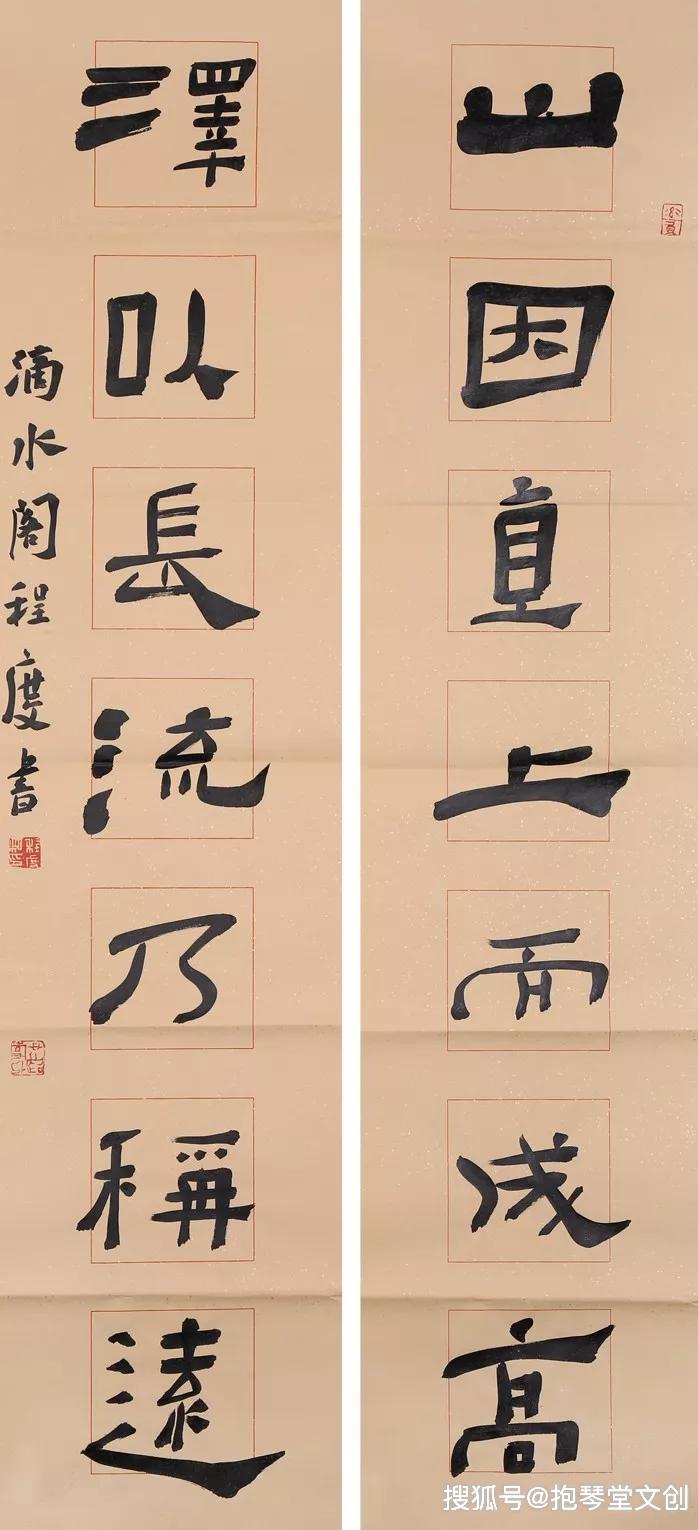 山因直上而成高
澤以長流乃稱遠
滴水閣程度書
搜狐号@抱琴堂文创